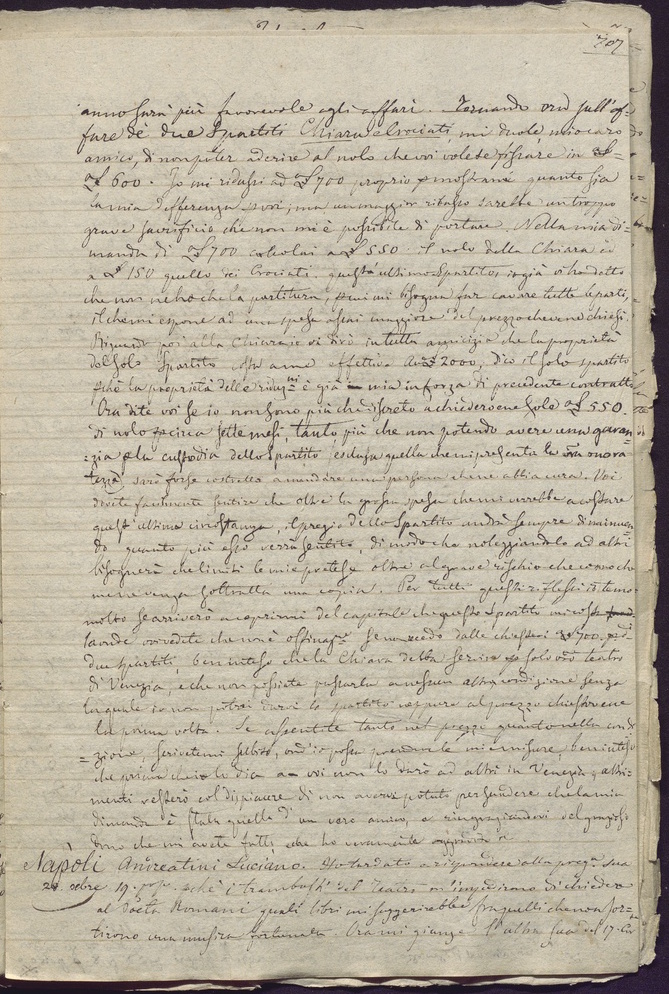 707
anno sarà più favorevole agli affari. Tornando ora sull'af-
fare de' due Spartiti Chiara e Crociati, mi duole, mio caro
amico, di non poter aderire al nolo che voi volete fissare in
600. Io mi ridussi ad 700 proprio p mostrarvi quanto sia
la mia differenza p voi; ma un maggior ribasso sarebbe un troppo
grave sacrificio che non mi è possibile di portare. Nella mia di-
manda di 700 calcolai a 550 il nolo della Chiara ed
a 150 quello dei Crociati. quest'ultimo Spartito, io già vi ho detto
che non ne ho che la partitura, p cui mi bisogna far cavare tutte le parti,
il che mi espone ad una spesa assai maggiore del prezzo che ve ne chiesi.
Riguardo poi alla Chiara io vi dirò in tutta amicizia che la proprietà
del solo Spartito costa a me effettive 2000, dico il solo spartito
pchè la proprietà delle riduzni è già mia in forza di precedente contratto
Ora dite voi se io non sono più che discreto a chiedervene sole 550.
di nolo p circa sette mesi, tanto più che non potendo avere una garan-
zia p la custodia dello Spartito esclusa quella che mi presenta la vra onora-
tezza, sarò forse costretto a mandare una persona che ne abbia cura. Voi
dovete facilmente sentire che oltre la grossa spesa che mi verrebbe a costare
quest'ultima circostanza, il pregio dello Spartito andrà sempre diminuen-
do quanto più esso verrà sentito, di modo che noleggiandolo ad altri
bisognerà che limiti le mie pretese oltre al grave rischio che io corro che
me ne venga sottratta una copia. Per tutti questi riflessi io temo
molto se arriverò a coprirmi del capitale che questo Spartito mi costa
laonde vi vedete che non è ostinazne se non recedo dalle chiestevi 700 p i
due spartiti, ben inteso che la Chiara debba servire p solo vro teatro
di Venezia, e che non possiate passarla a nessun altro condizione senza
la quale io non potrei darvi lo spartito neppure al prezzo chiestovene
la prima volta. Se assentite tanto nel prezzo quanto nella condi-
zione, scrivetemi subito, ond'io possa prendere le mie misure, ben inteso
che prima che io lo dia a voi non lo darò ad altri in Venezia, altri-
menti resterò col dispiacere di non avervi potuto persuadere che la mia
dimanda è stata quella d'un vero amico, e ringraziandovi del grazioso
dono che mi avete fatto, che ho veramente aggradito
Napoli Andreatini Luciano. Ho tardato a rispondere alla preg. sua
28 8bre 19. pchè i trambusti del Teatro m'impedirono di chiedere
al Poeta Romani quali libri mi suggerirebbe fra quelli che non sor-
tirono una musica fortunata. Ora mi giunge l'altra sua del 17.